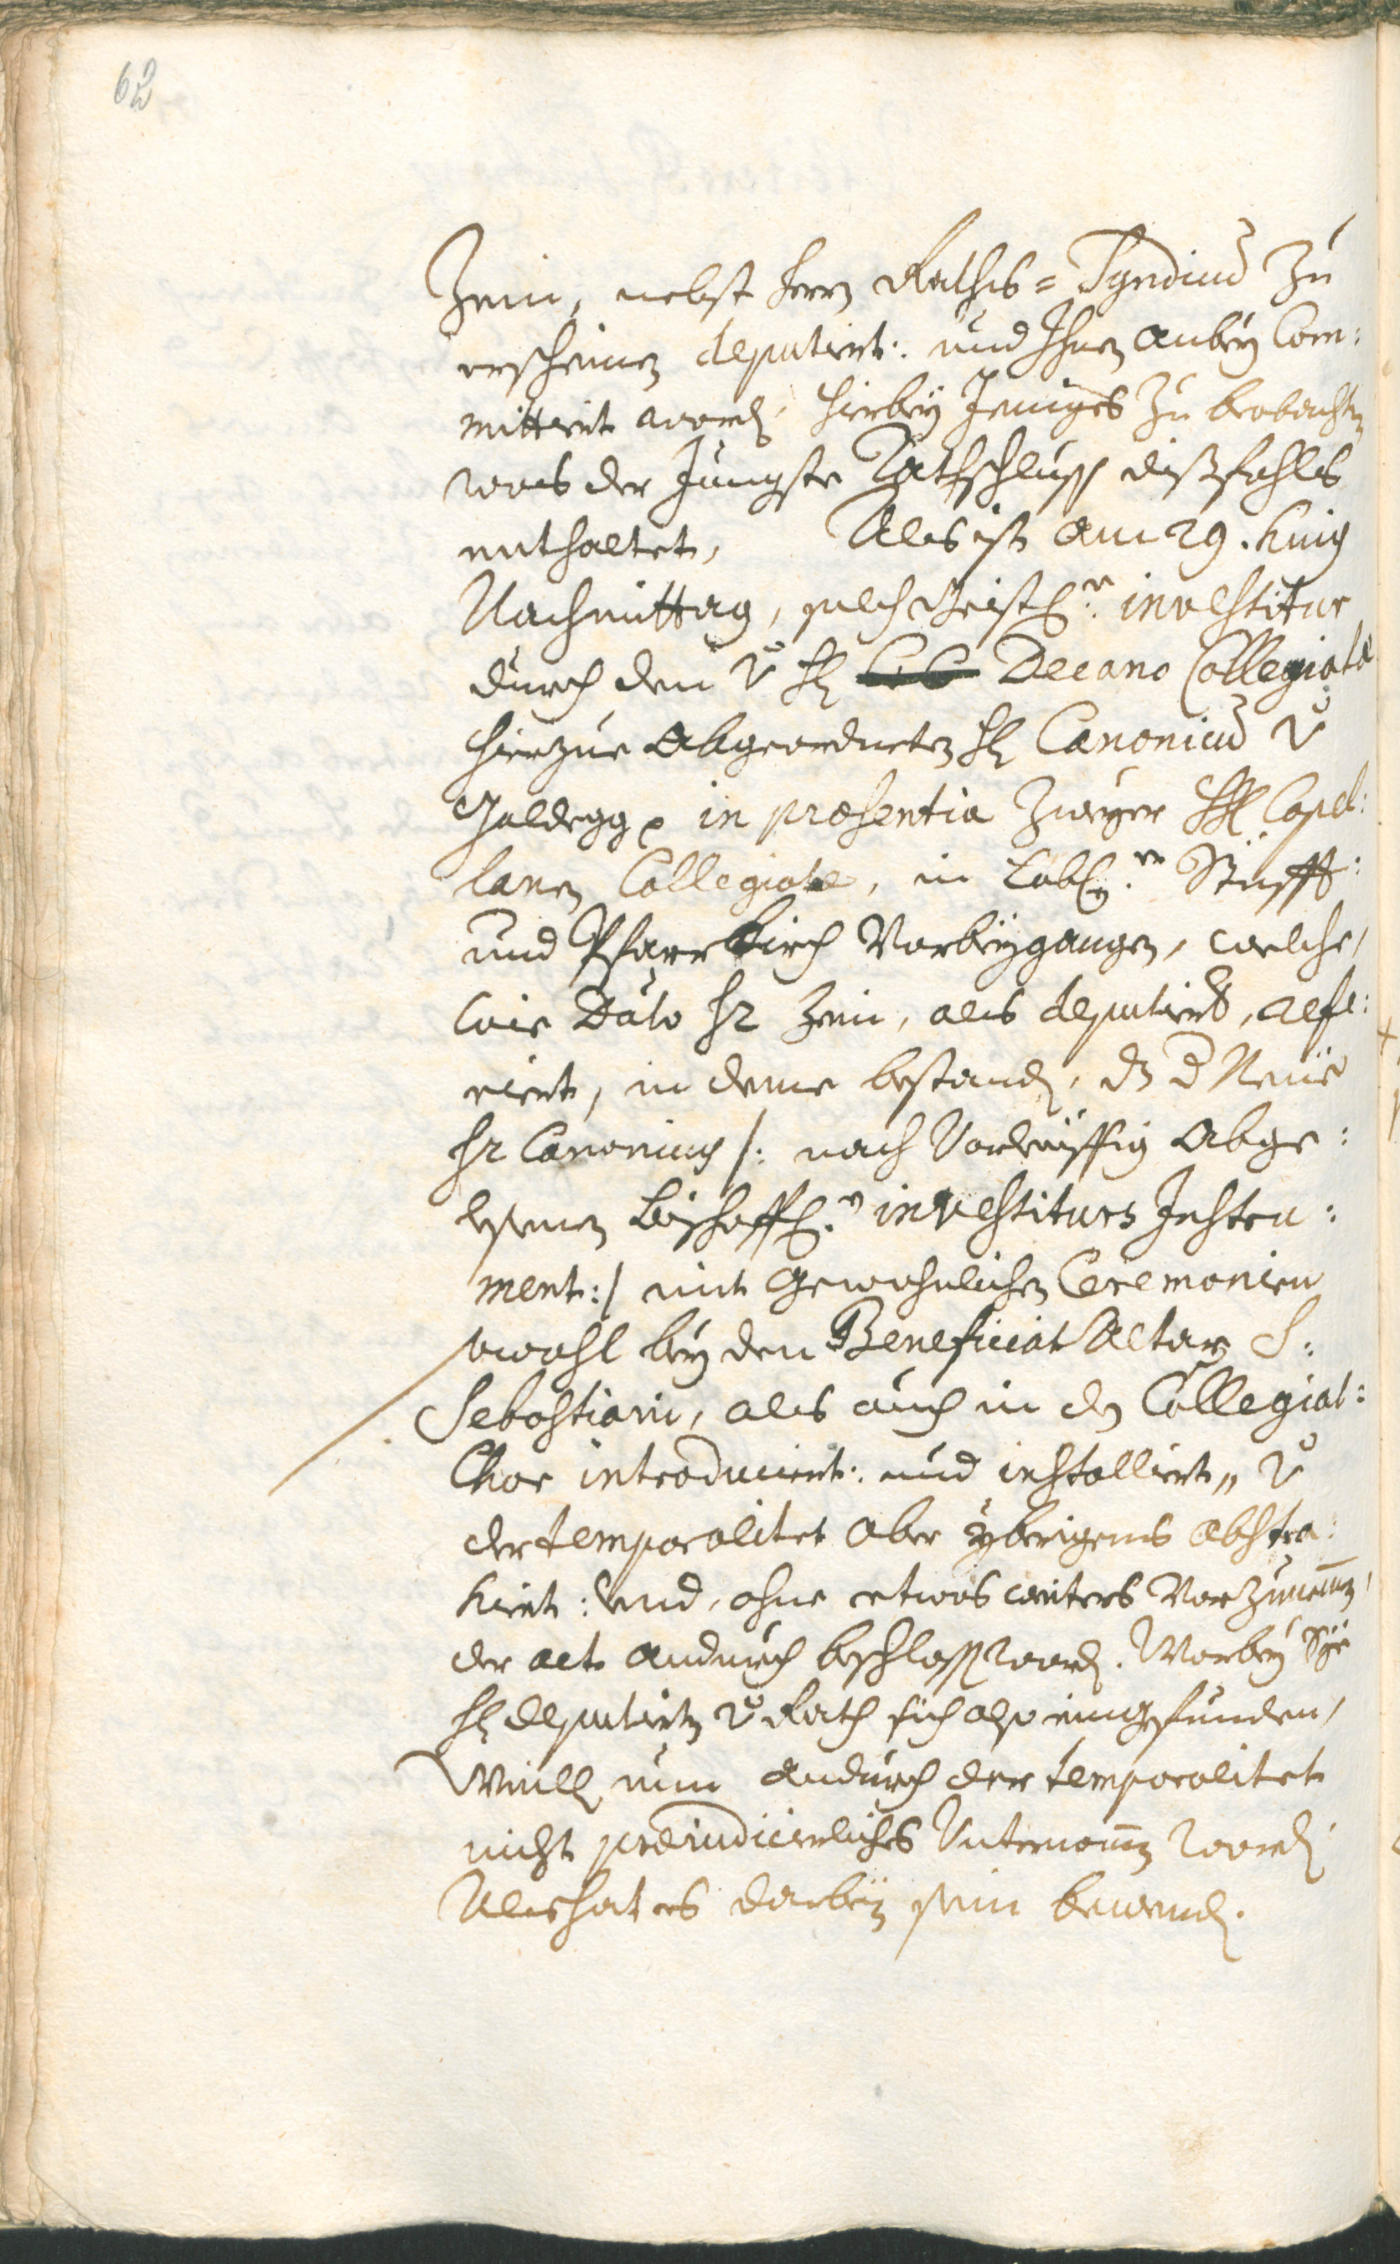 62
Zeni, nebst herrn Raths=Syndicus zu
erscheinen deputiert: und Ihnen anbey Com:
mittiert word[en] hierbey Jeniges zu beobachten
was der Jüngste Rathschluss dißfahls
enthaltet, Als ist am 29. huig
Nachmittag, solch geistl:r investitur
durch den v. H: Decano Collegiatæ
hierzue abgeordneten H: Canonicus v
Jaldegg in præsentia zweyer HH: Capel:
lanen Collegiatæ, in Lobl:en Stüfft:
und Pfarrkirch Vorbeygangen, welche,
wie Dato hr Zeni, als deputiert, refe:
riert, in deme bestand[en], dz d Neüe
hr Canonicus /: nach Vorleüffig abge:
lesenen Bischoffl:n investiturs Instru:
ment:/ mit gewohnlichen Ceremonien
sowohl bey den Beneficiat Altar S:
Sebastiani, als auch in dz Collegiat:
Chor introduciert: und installiert, v
der temporalitet aber yberigens abstra:
hiert: und, ohne etwas weiters Vorzunemen,
der act andurch beschlossen word[en]. Worbey Sye
H: deputierten v Rath sich also eingefunden,
Weill nun andurch der temporalitet
nicht præiudicierliches Unternomen word[en]
Als hat es darbey sein bewend[en].